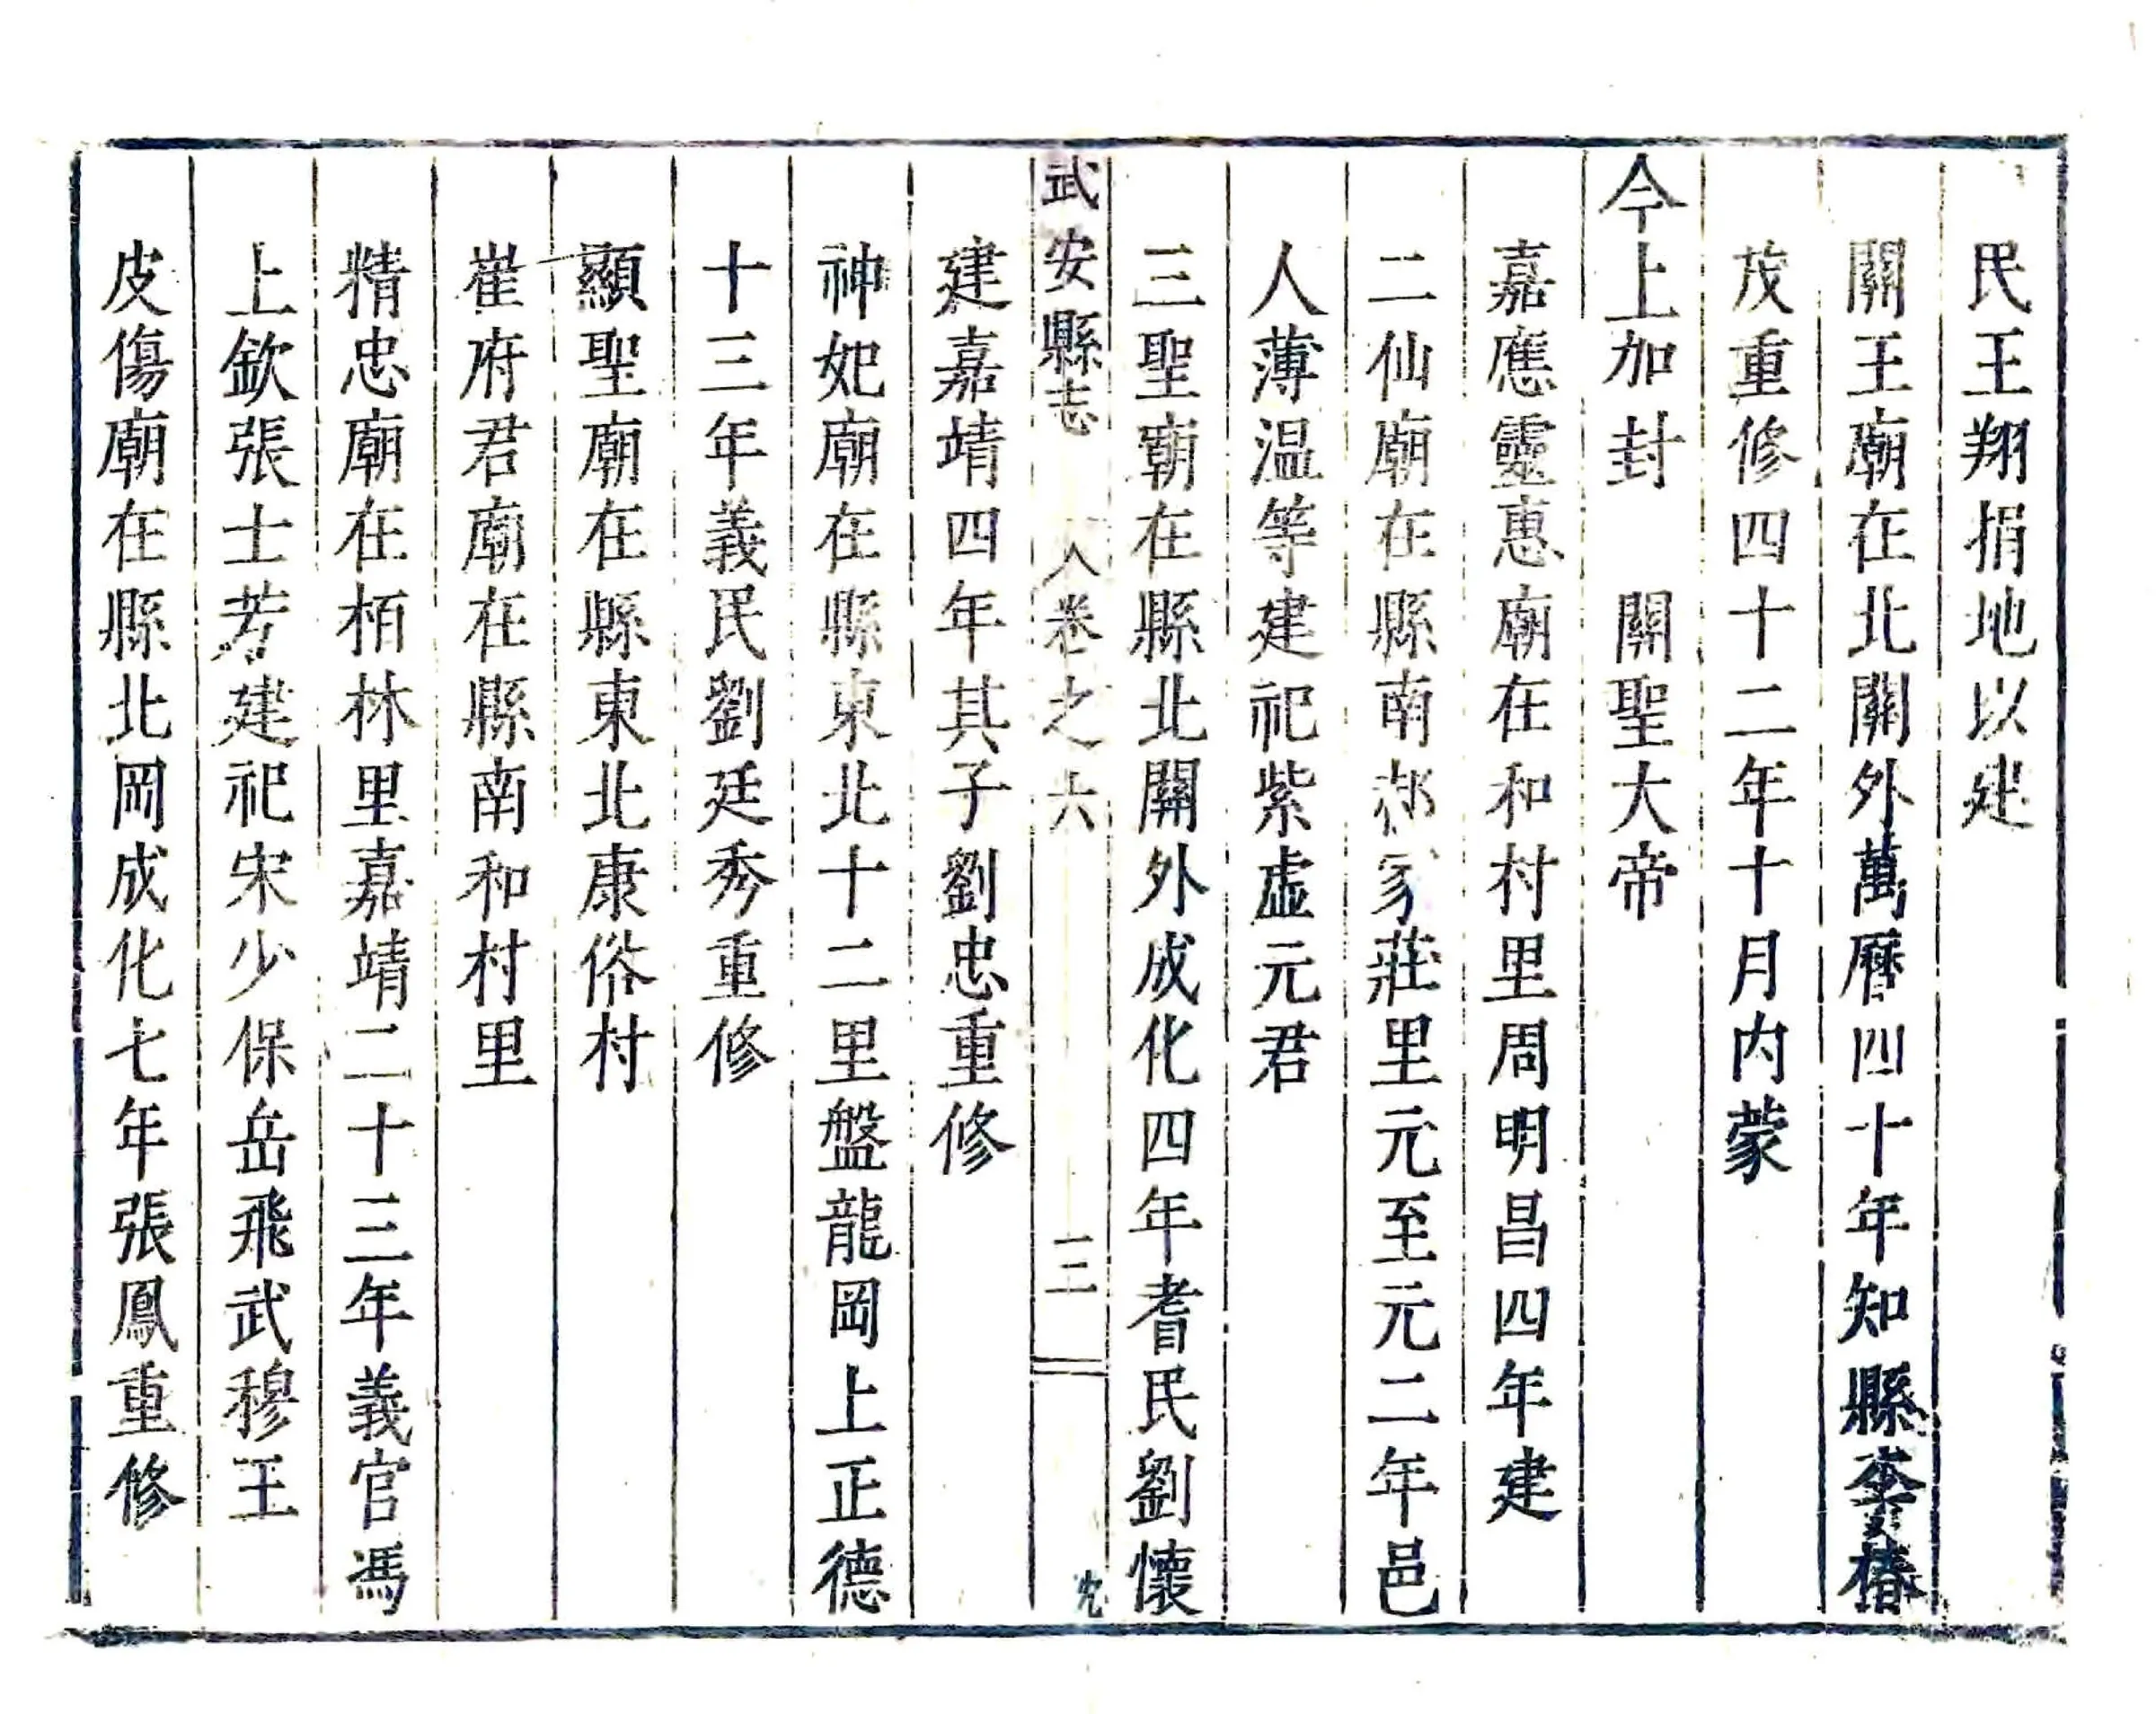 民王翔捐地以建
關王廟在北關外萬曆四十年知縣李椿
茂重修四十二年十月内蒙
今上加封　關聖大帝
嘉應靈惠廟在和村里周明昌四年建
二仙廟在縣南郝家莊里元至元二年邑
人薄温等建祀紫虚元君
三聖廟在縣北關外成化四年耆民劉懷
武安縣志　卷之六　三
建嘉靖四年其子劉忠重修
神妃廟在縣東北十二里盤龍岡上正德
十三年義民劉廷秀重修
顯聖廟在縣東北康俗村
崔府君廟在縣南和村里
精忠廟在栢林里嘉靖二十三年義官馮
上欽張士芳建祀宋少保岳飛武穆王
皮傷廟在縣北岡成化七年張鳳重修